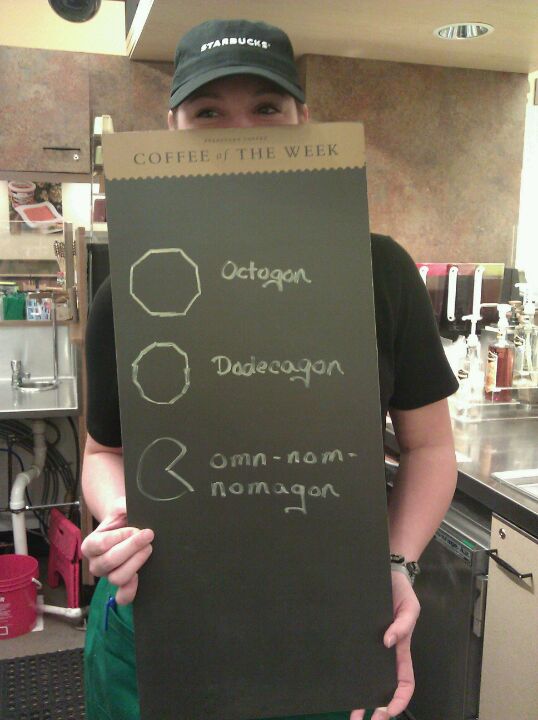 STARBUCKS
COFFEE of THE WEEK
Octogon
Dodecagon
omn-nom-
nomagon